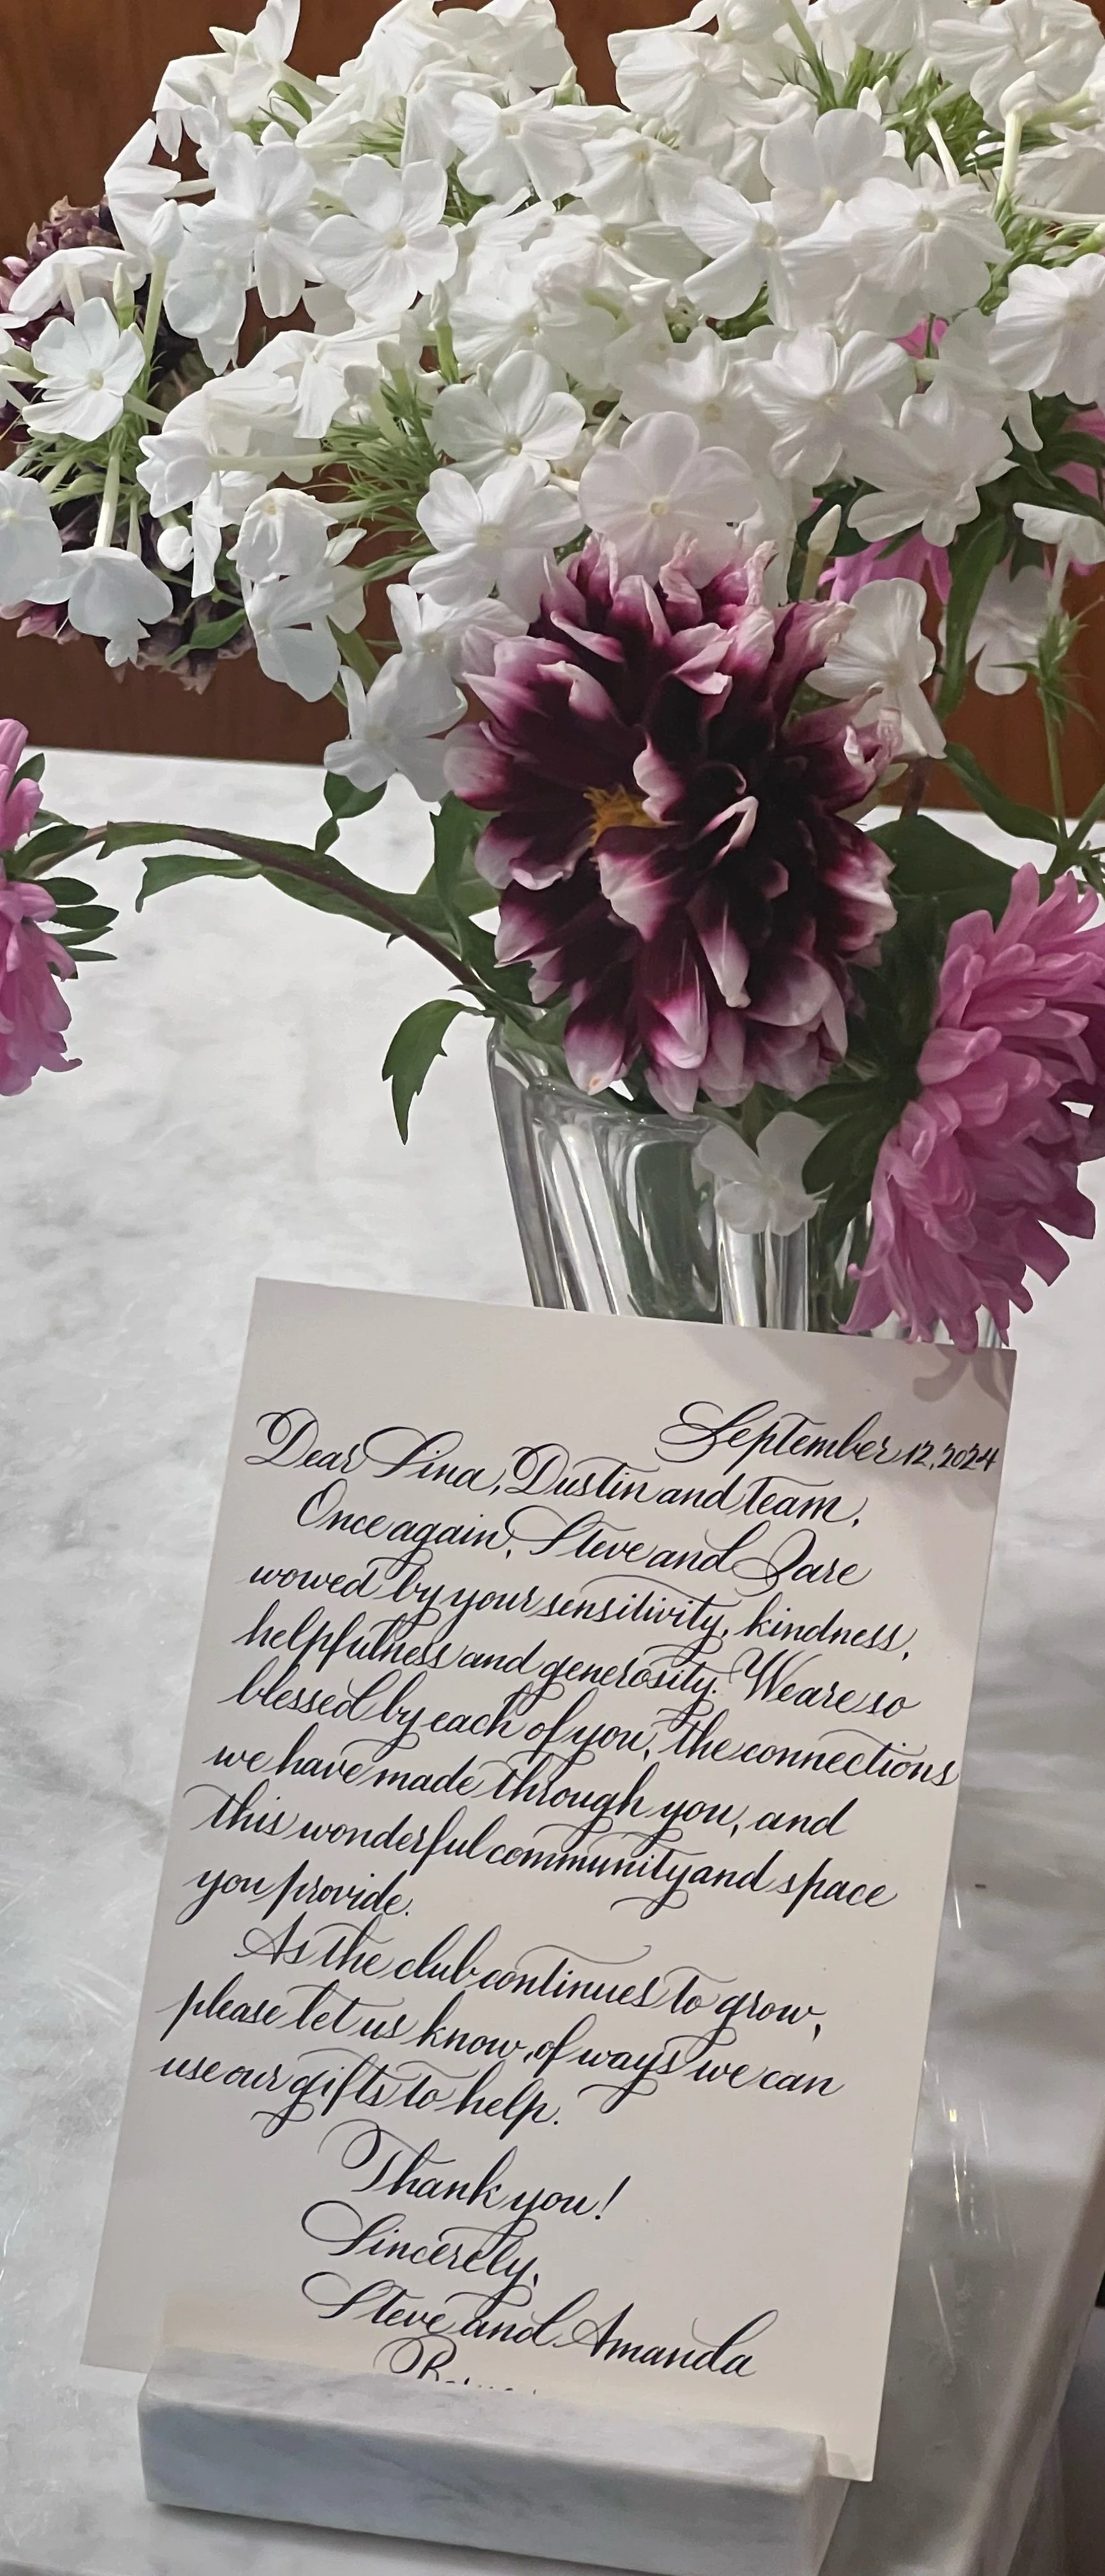 September 12, 2024
Dear Lina, Dustin and team,
Once again, Steve and I are
wowed by your sensitivity, kindness,
helpfulness and generosity. We are so
blessed by each of you, the connections
we have made through you, and
this wonderful community and space
you provide.
As the club continues to grow,
please let us know, of ways we can
use our gifts to help.
Thank you!
Sincerely,
Steve and Amanda